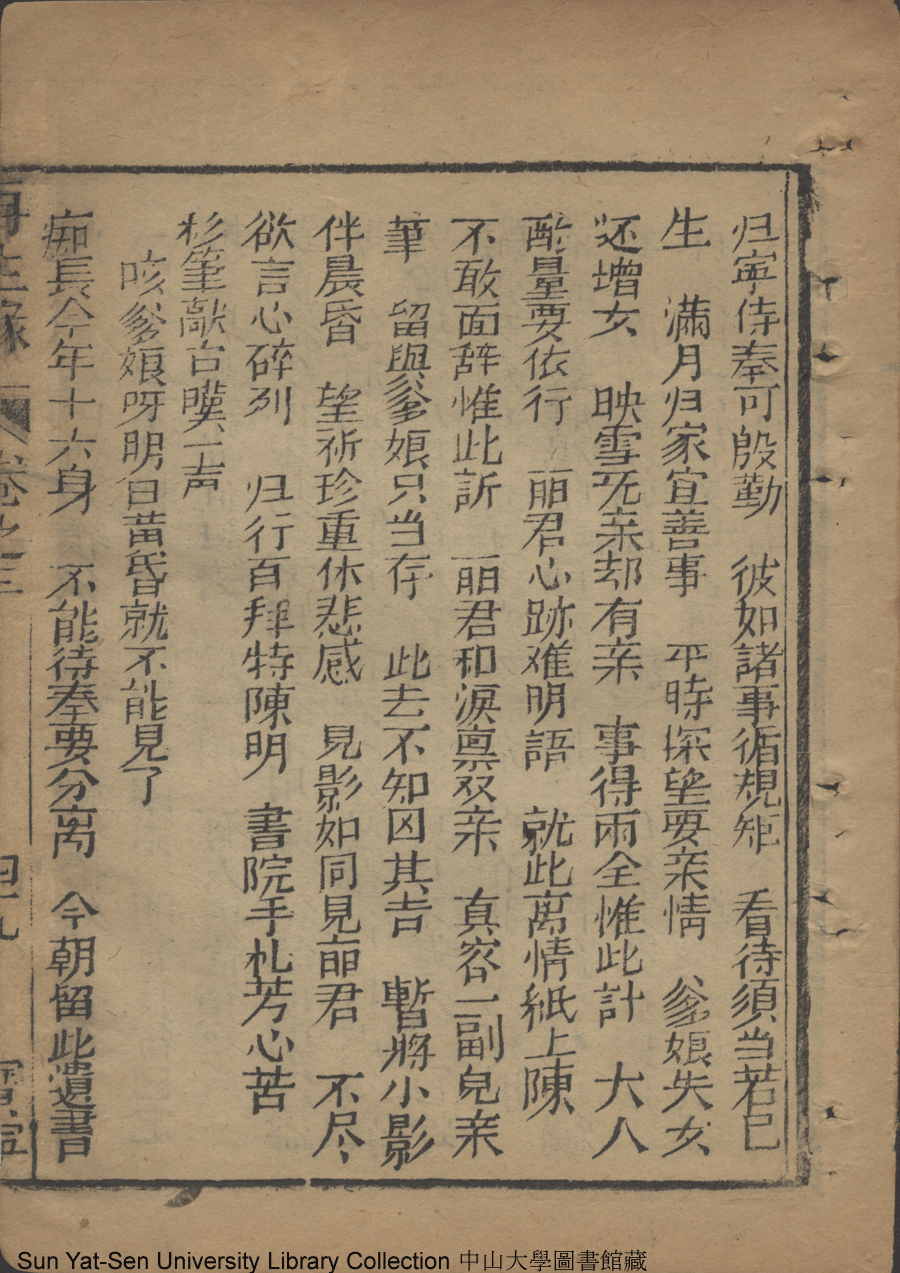 归寧侍奉可殷勤　彼如諸事循規矩　看待須当若已
生　满月归家宜善事　平時探望要亲情　爹娘失女
还增女　映雪无亲却有亲　事得兩全惟此計　大人
酌量要依行　丽君心跡难明語　就此离情紙上陳
不敢面辞惟此訴　丽君和淚禀双亲　真容一副皃亲
筆　留與爹娘只当存　此去不知凶其吉　暫將小影
伴晨昏　望祈珍重休悲感　見影如同見丽君　不尽
欲言心碎列　归行百拜特陳明　書院手札芳心苦
筆敲古一声
咳爹娘呀明日黄昏就不能見了
痴長今年十六身　不能待奉要分离　今朝留此遺書
再生緣　卷之三　四九
Sun Yat-Sen University Library Collection 中山大學圖書館藏